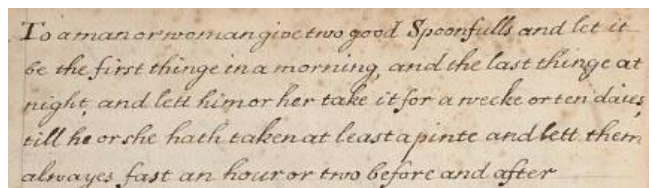 To a man or woman give two good Spoonfulls and let it
be the first thinge in a morning, and the last thinge at
night, and lett him or her take it for a weeke or ten daies,
till he or she hath taken at least a pinte and lett them
alwayes fast an hour or two before and after